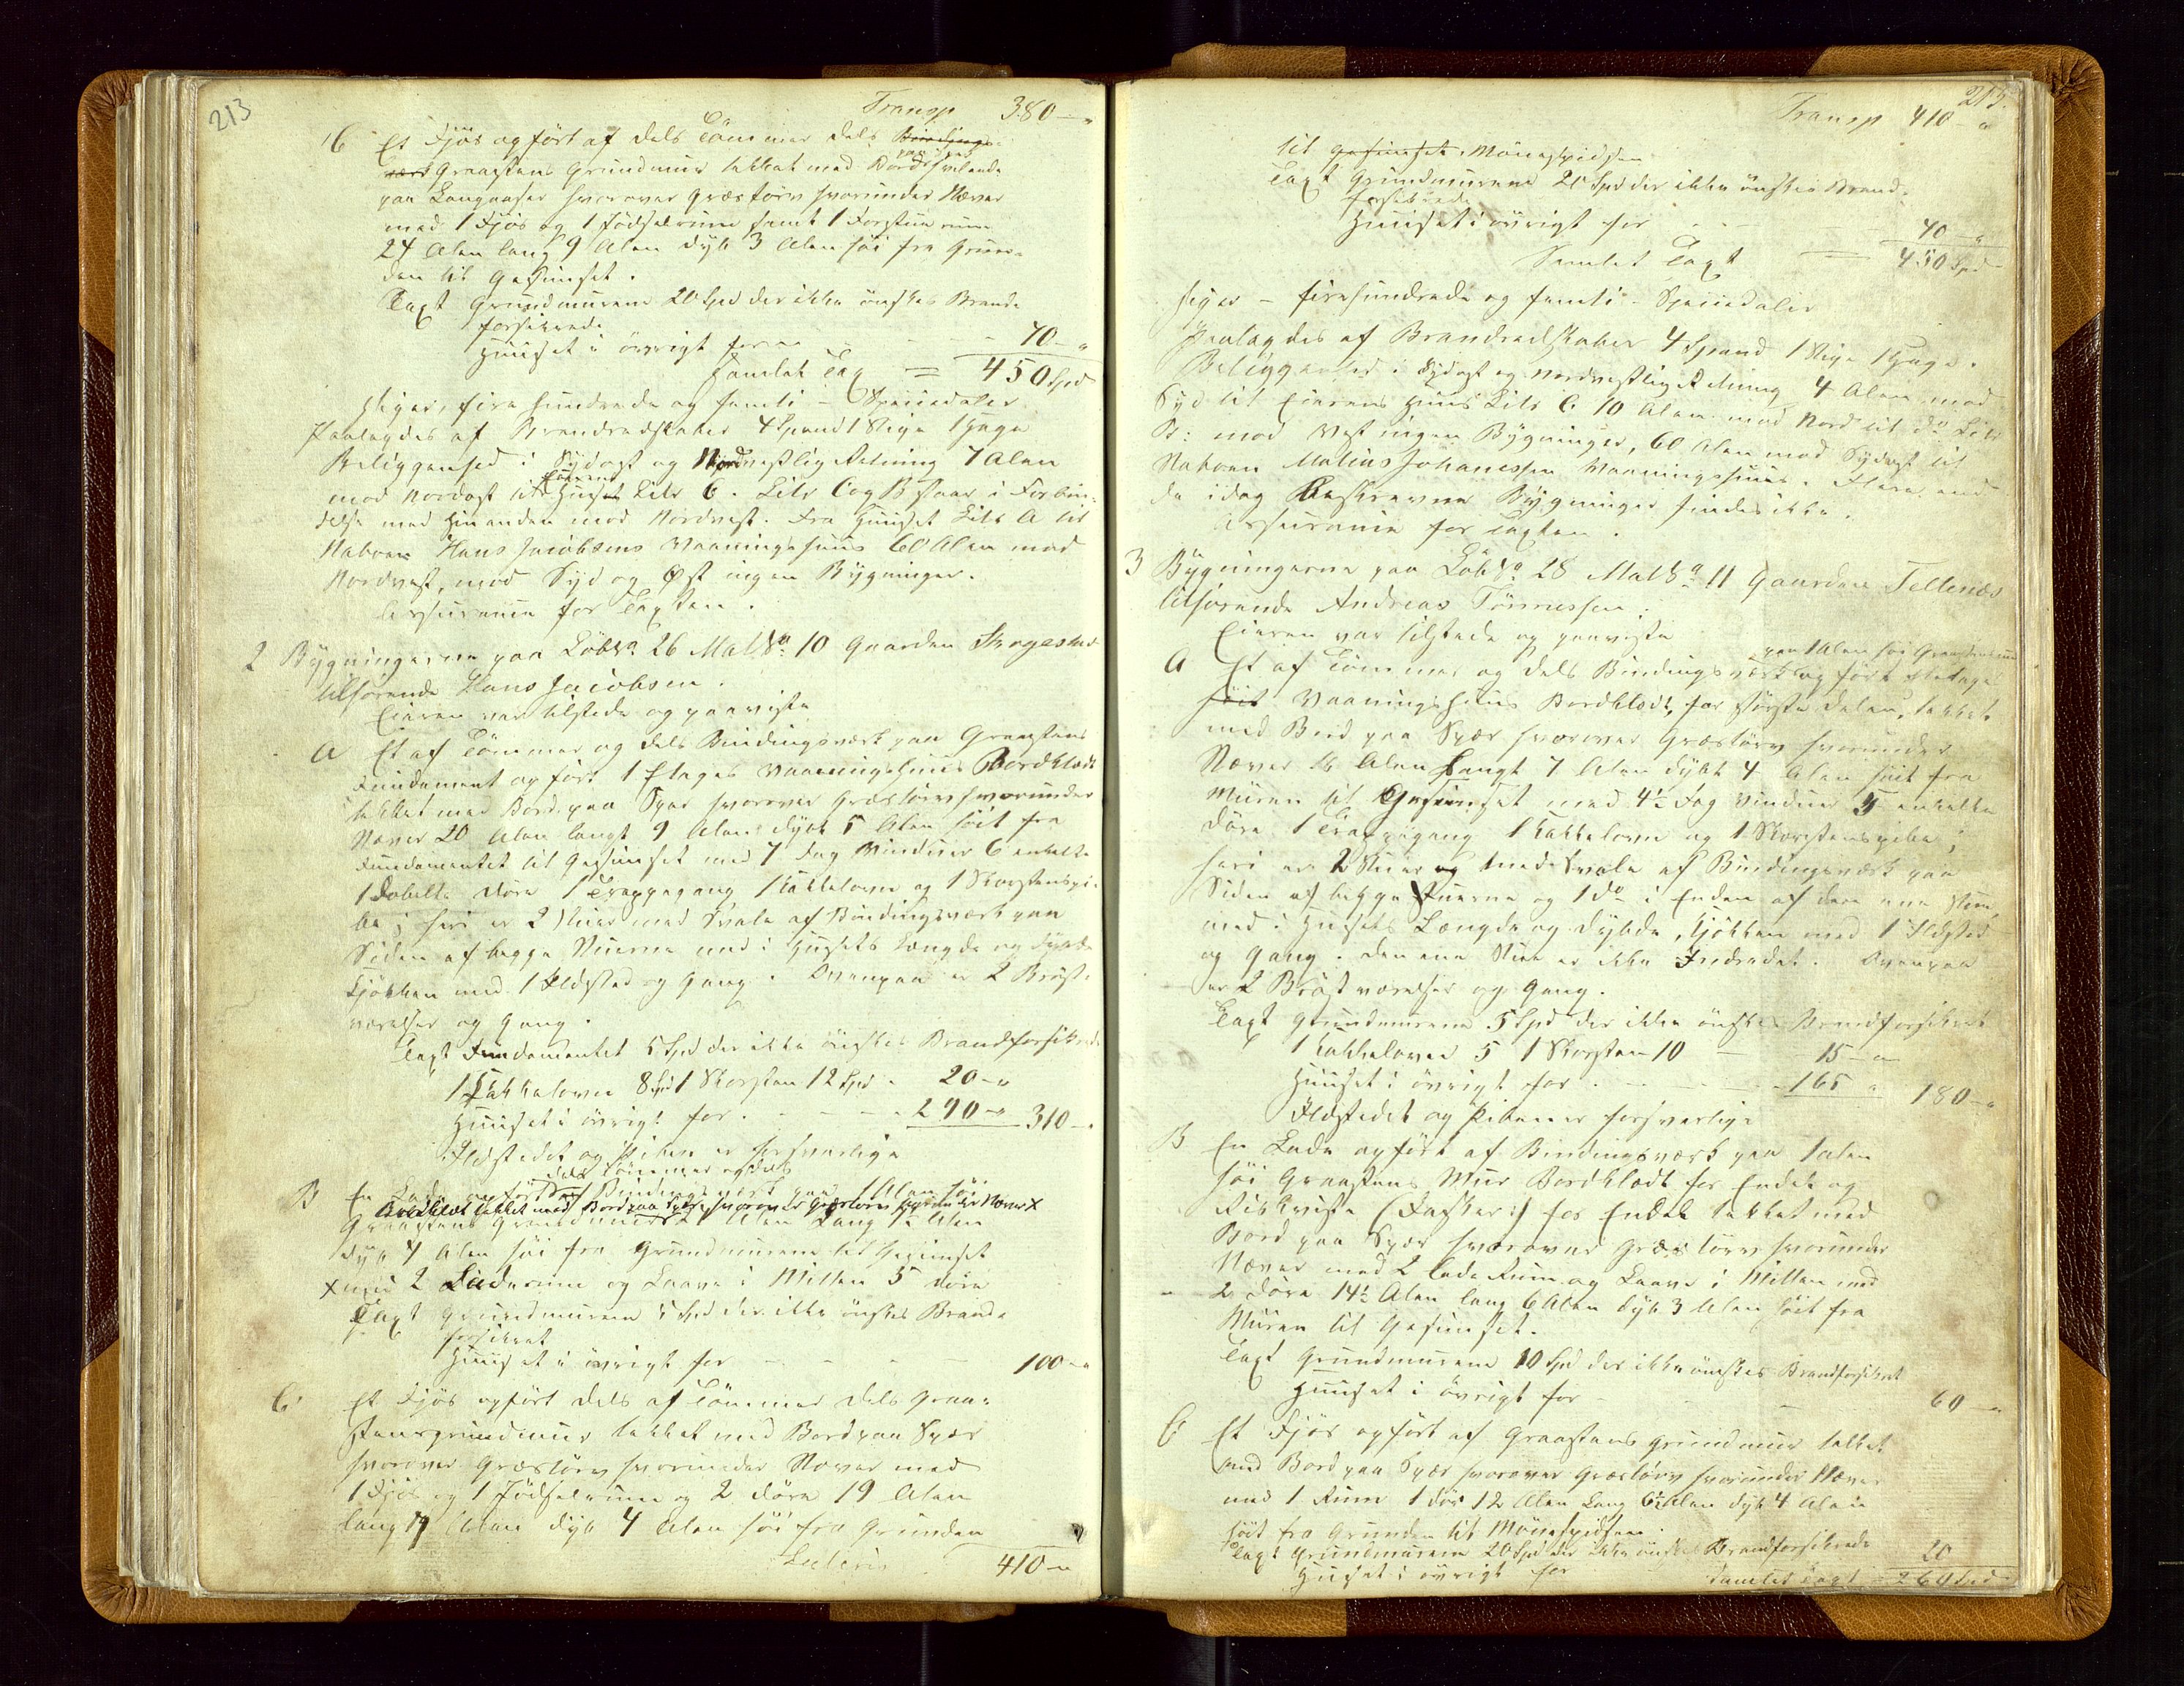 213
Transp 380 - "
C Et Fjøs opført af dels Tømmer dels Bindings-
værk Graastens Grundmuur tækket med Bord hvilende
paa Langaaser hvorover Græstørv hvorunder Næver
med 1 Fjøs og 1 Fødselrum samt 1 Forstue rum
24 Alen lang 9 Alen dyb 3 Alen høi fra Grun-
den til Gesimset.
Taxt Grundmurene 20 Spd der ikke ønskes Brand-
forsikrede
Huuset i øvrigt for 70 - "
Samlet Tax = 450 Spd
siger, fire hundrede og femti - Speciedaler
Paalagdes af Brandredskaber 4 Spand 1 Stige 1 Hage
Beliggenhed i Sydost og Nordvestlig Retning 7 Alen
mod Nordost til Eierens Huus Litr C. Litr C og B staar i Forbin-
delse med hinanden mod Nordvest. Fra Huuset Litr A til
Naboen Hans Jacobsens Vaaningshuus 60 Alen mod
Nordvest, mod Syd og Øst ingen Bygninger.
Assurance for Taxten.
2 Bygningerne paa Løb No. 26 Mat No. 10 Gaarden
tilhørende Hans Jacobsen.
Eieren var tilstede og paaviste
A Et af Tømmer og dels Bindingsværk paa Graastens
Fundament opført 1 Etages Vaaningshuus Bordklædt
tækket med Bord paa Spær hvorover Græstørv hvorunder
Næver 20 Alen langt 9 Alen dybt 5 Alen høit fra
Fundamentet til Gesimset med 7 Fag Vinduer 6 enkelte
1 dobelte Døre 1 Trappegang 1 Kakkelovn og 1 Skorstenspi-
be; heri er 2 Stuer med Svale af Bindingsværk paa
Siden af begge Stuerne med i Husets Længde og Dybde
Kjøkken med 1 Ildsted og Gang. Ovenpaa er 2 Bryst-
værelser og Gang.
Taxt Fundamentet 5 Spd der ikke ønskes Brandforsikrede
1 Kakkelovn 8 Spd 1 Skorsten 12 Spd - 20 - "
Huuset i øvrigt for - 290 - " 310 - "
Ildstedet og Piben er forsvarlige
dels Tømmer og dels
B En Lade opført af Bindingsværk paa 1 Alen høi
Bordklædt tækket med Bord paa Spær, hvorover Græstørv hvorunder Næver X
Graastens Grundmuur Alen lang Alen
dyb 4 Alen høi fra Grundmurene til Gesimset
X med 2 Laderum og Laave i Mitten 5 Døre
Taxt Grundmurene 5 Spd der ikke ønskes Brand-
forsikret
Huuset i øvrigt for 100 - "
C Et Fjøs opført dels af Tømmer dels Graa-
stensgrundmuur tækket med Bord paa Spær
hvorover Græstørv hvorunder Næver med
1 Fjøs og 1 Fødselrum og 2 Døre 19 Alen
lang Alen dyb 4 Alen høi fra Grunden
Lateris 410 - "
213.
Transp 410 - "
til Gesimset Mønespidsen
Taxt Grundmurene 20 Spd der ikke ønskes Brand-
forsikrede
Huuset i øvrigt for 40 - "
Samlet Taxt = 450 Spd
siger - firehundrede og femti - Speciedaler
Paalagdes af Brandredskaber 4 Spand 1 Stige 1 Hage.
Beliggenhed i Sydost og Nordvestlig Retning 4 Alen mod
Syd til Eierens Huus Litr C. 10 Alen mod Nord til do Litr
B: mod Vest ingen Bygninger, 60 Alen mod Sydost til
Naboen Matias Johanessen Vaaningshuus. Flere end
de idag beskrevne Bygninger findes ikke.
Assurance for Taxten.
3 Bygningerne paa Løb No 28 Mat No 11 Gaarden Tellenæs
tilhørende Andreas Tønnessen.
Eieren var tilstede og paaviste
paa 1 Alen høi Graastensmuur
A Et af Tømmer og dels Bindingsværk opført Etages
høit Vaaningshuus Bordklædt, for største Delen, tækket
med Bord paa Spær hvorover Græstørv hvorunder
Næver 16 Alen langt 7 Alen dybt 4 Alen høit fra
Muren til Gesimset med 4½ Fag Vinduer 5 enkelte
Døre 1 Trappegang 1 Kakkelovn og 1 Skorstenspibe;
heri er 2 Stuer og med Svale af Bindingsværk paa
Siden af begge Stuerne og 1 do i Enden af den ene Stue,
med i Husets Længde og Dybde, Kjøkken med 1 Ildsted
og Gang. Den ene Stue er ikke Indredet. Ovenpaa
er 2 Brystværelser og Gang.
Taxt Grundmurene 5 Spd der ikke ønskes Brandforsikret
1 Kakkelovn 5 1 Skorsten 10 - 15 - "
Huuset i øvrigt for - 165 " 180 - "
Ildstedet og Piben er forsvarlige
B En Lade opført af Bindingsværk paa 1 Alen
høi Graastens Muur Bordklædt for Endel og
Riskviste (Fasker:) for Endel tækket med
Bord paa Spær hvorover Græstørv hvorunder
Næver med 2 Lade Rum og Laave i Mitten med
2 Døre 14½ Alen lang 6 Alen dyb 3 Alen høit fra
Muren til Gesimset.
Taxt Grundmurene 10 Spd der ikke ønskes Brandforsikret
Huuset i øvrigt for - 60 - "
C Et Fjøs opført af Graastens Grundmuur tækket
med Bord paa Spær hvorover Græstørv hvorunder Næver
med 1 Rum 1 Dør 12 Alen lang 6½ Alen dyb 4 Alen
høit fra Grunden til Mønespidsen.
Taxt Grundmurene 20 Spd der ikke ønskes Brandforsikrede
Huuset i øvrigt for 20
Samlet Taxt = 260 Spd